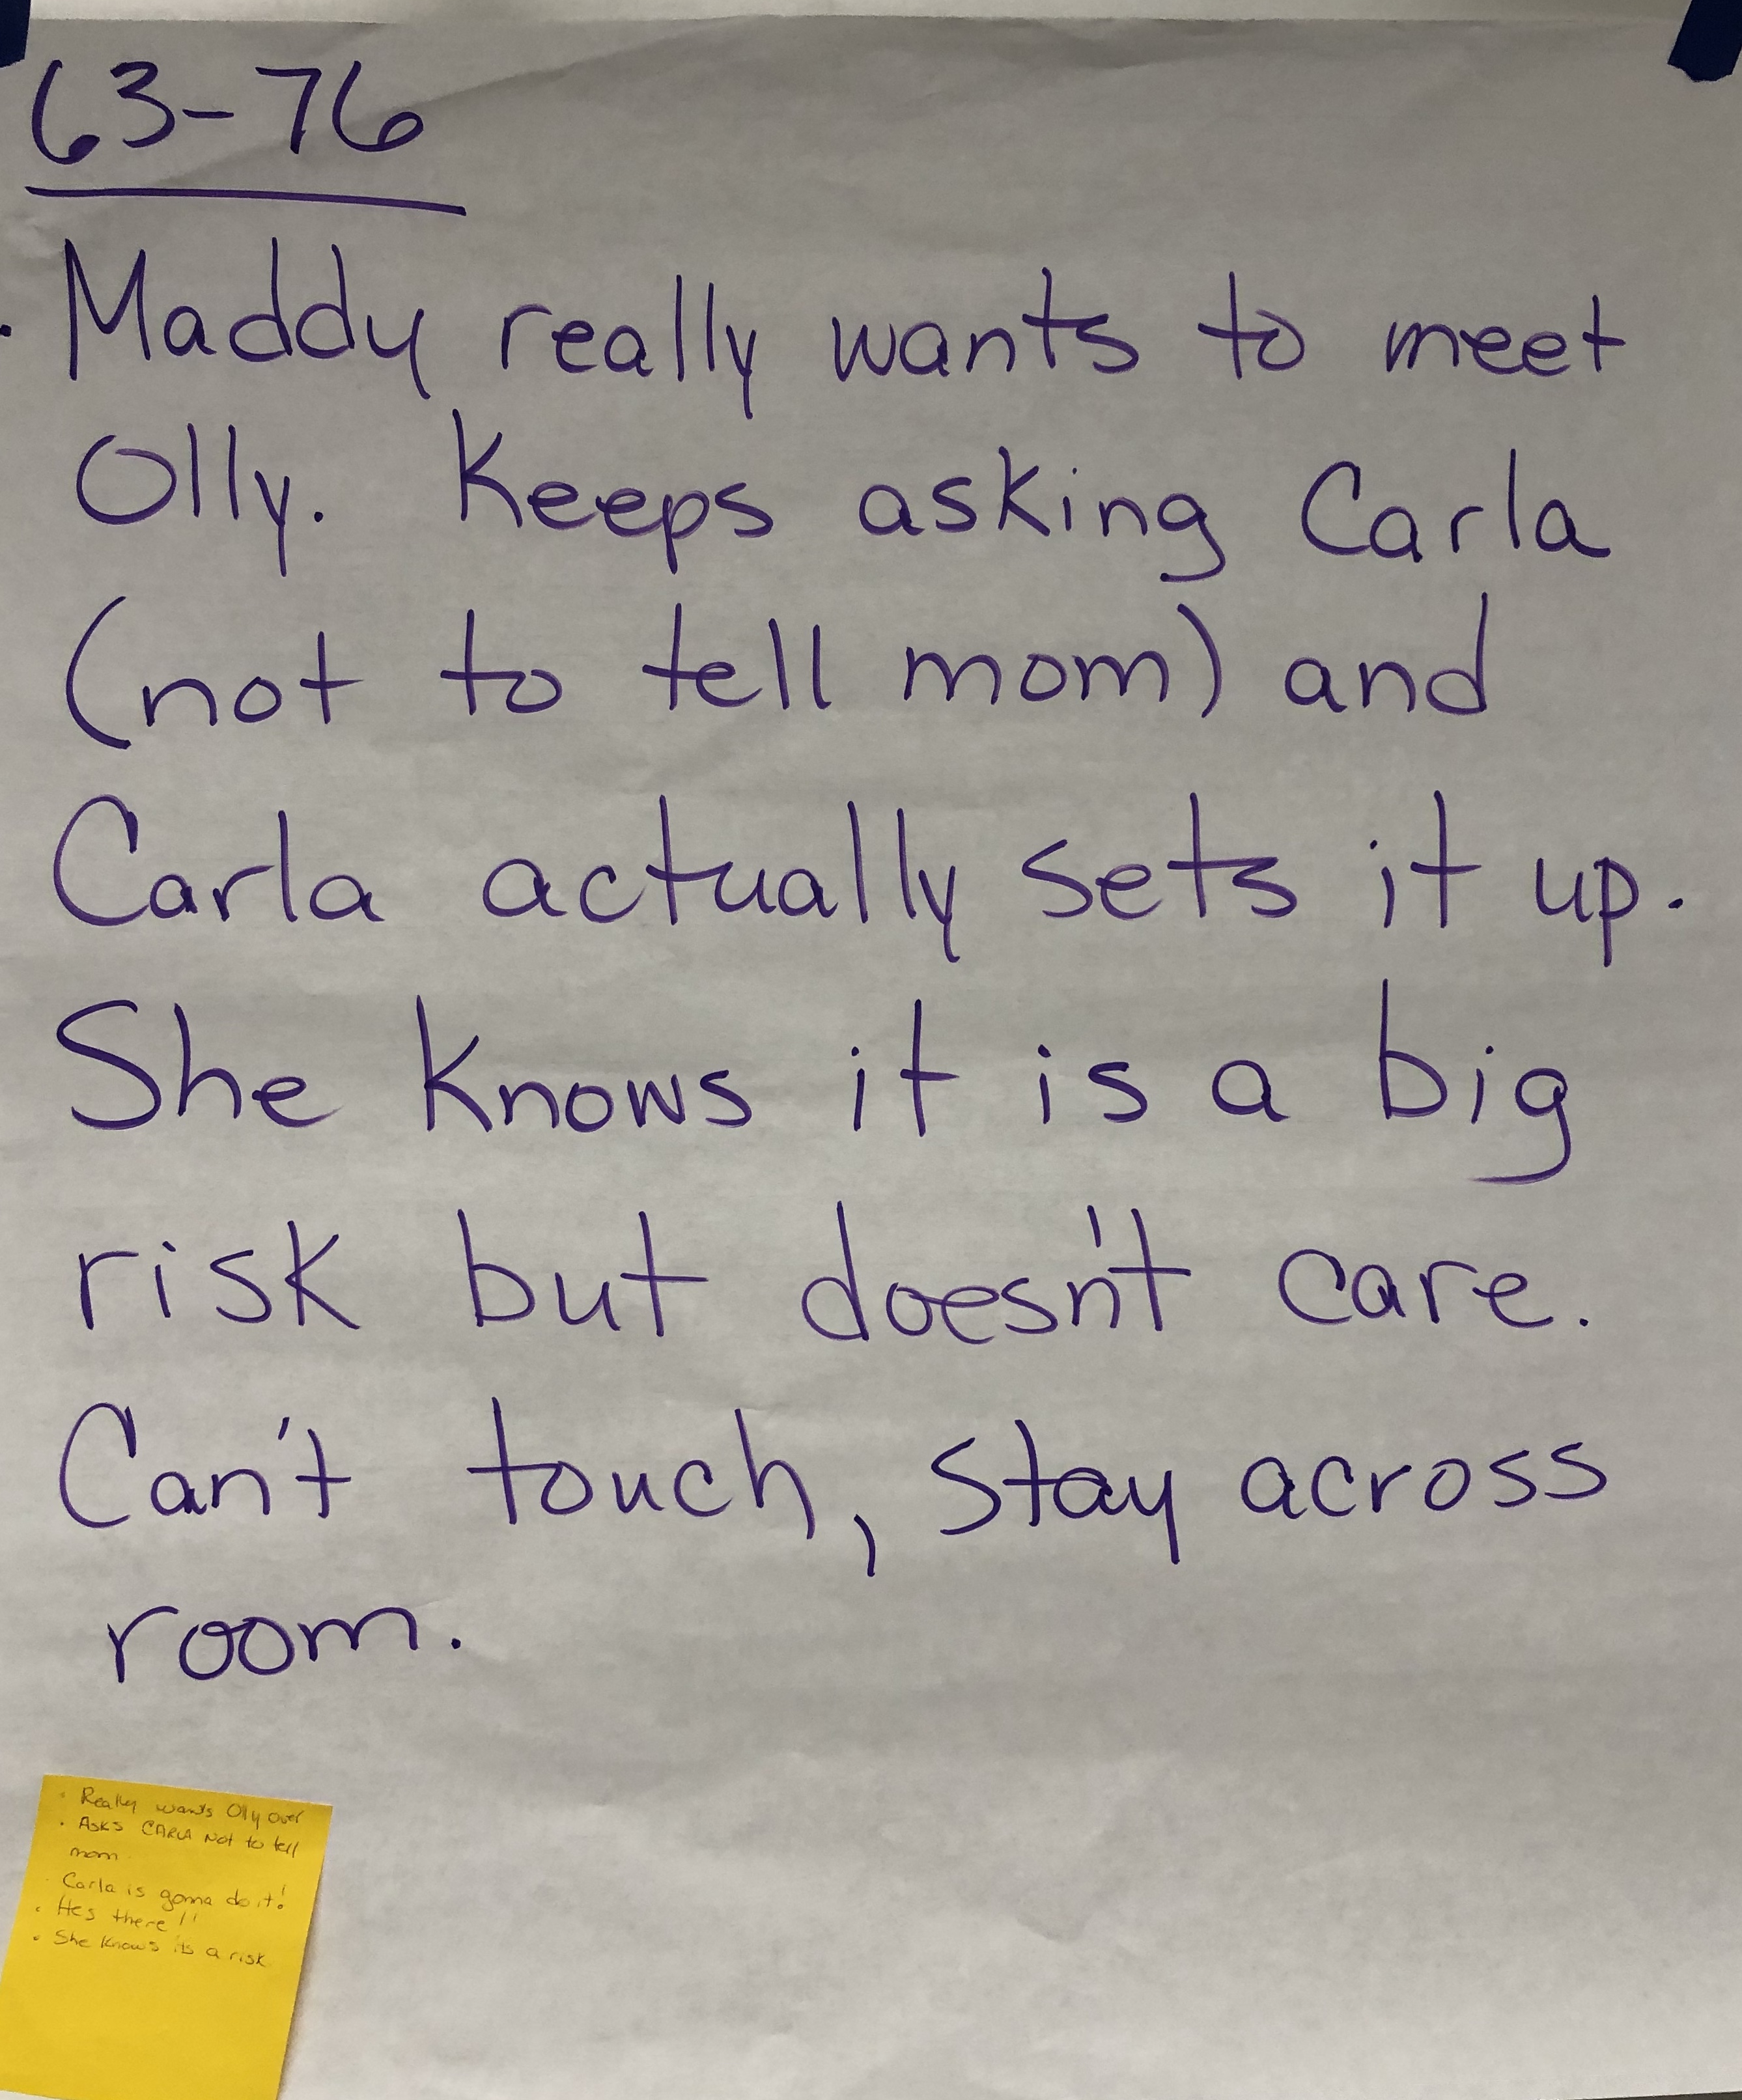 63-76
· Maddy really wants to meet
Olly. Keeps asking Carla
(not to tell mom) and
Carla actually sets it up.
She knows it is a big
risk but doesn't care.
Can't touch, stay across
room.
· Really wants Olly over
· Asks CARLA Not to tell
mom
· Carla is gonna do it!
· Hes there!!
· She knows its a risk